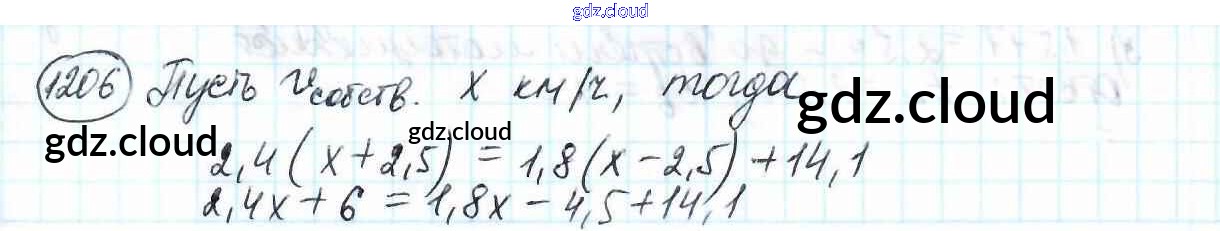 gdz.cloud
1206 Пусть Vсобств. x км/ч, тогда
gdz.cloud gdz.cloud gdz.cloud
2,4(x+2,5)=1,8(x-2,5)+14,1
2,4x+6=1,8x-4,5+14,1